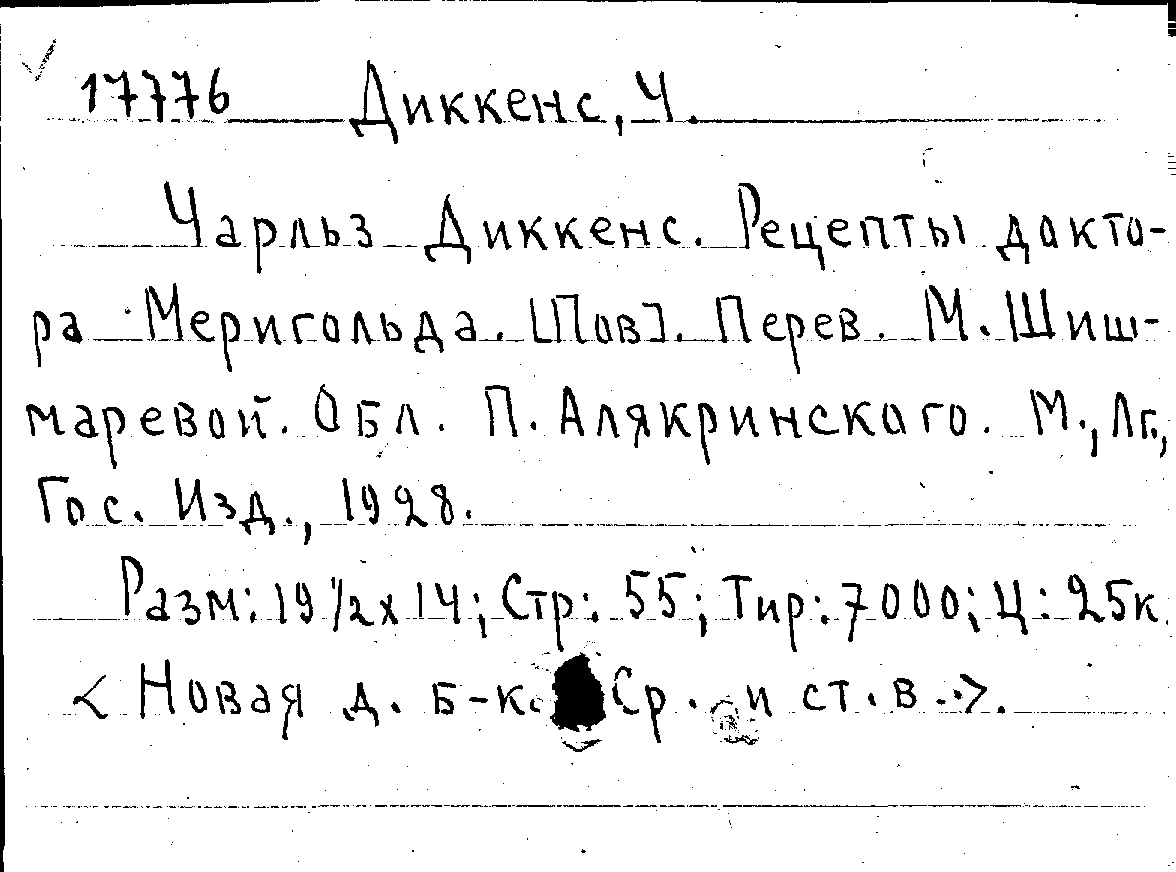 17776 Диккенс, Ч.
Чарльз Диккенс. Рецепты докто-
ра Меригольда. [Пов]. Перев. М. Шиш-
маревой. Обл. П. Алякринского. М., Лг.,
Гос. Изд., 1928.
Разм: 19 1/2 x 14; Стр: 55; Тир: 7000; Ц: 25к.
< Новая д. б-к. Ср. и ст. в. >.